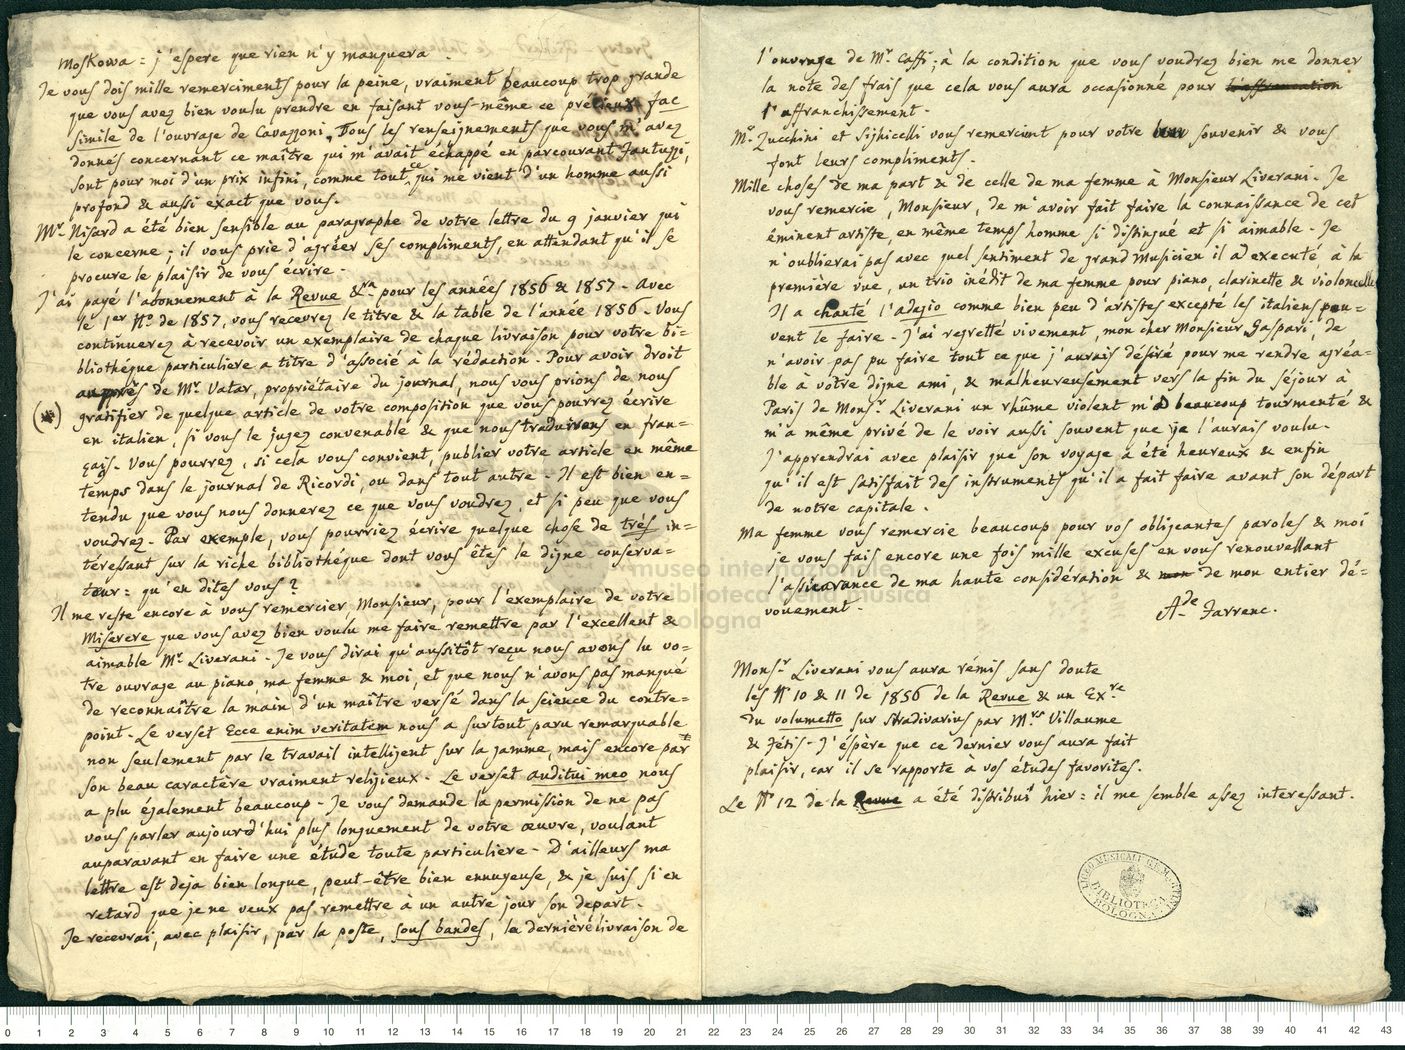 Moskowa = j'espere que rien n'y manquera.
Je vous dois mille remerciments pour la peine, vraiment beaucoup trop grande
que vous avez bien voulu prendre en faisant vous-même ce précieux fac
simile de l'ouvrage de Cavazzoni. Tous les renseignements que vous m'avez
donnés concernant ce maître qui m'avait échappé en parcourant Fantuzzi,
sont pour moi d'un prix infini, comme tout ce qui me vient d'un homme aussi
profond & aussi exact que vous.
Mr. Nisard a été bien sensible au paragraphe de votre lettre du 9 janvier qui
le concerne; il vous prie d'agréer ses compliments, en attendant qu'il se
procure le plaisir de vous écrire.
J'ai payé l'abonnement à la Revue &ra. pour les années 1856 & 1857. Avec
le 1er No. de 1857, vous recevrez le titre & la table de l'année 1856. Vous
continuerez à recevoir un exemplaire de chaque livraison pour votre bi=
bliothéque particuliere a titre d'associé à la rédaction. Pour avoir droit
auprès de Mr. Vatar, propriétaire du journal, nous vous prions de nous
gratifier de quelque article de votre composition que vous pourrez écrire
en italien, si vous le jugez convenable & que nous traduirons en fran=
çais. Vous pourrez, si cela vous convient, publier votre article en même
temps dans le journal de Ricordi, ou dans tout autre. Il est bien en=
tendu que vous nous donnerez ce que vous voudrez, et si peu que vous
voudrez. Par exemple, vous pourriez écrire quelque chose de très in=
téressant sur la riche bibliothéque dont vous êtes le digne conserva=
teur: qu'en dites vous?
Il me reste encore à vous remercier, Monsieur, pour l'exemplaire de votre
Miserere que vous avez bien voulu me faire remettre par l'excellent &
aimable Mr. Liverani. Je vous dirai qu'aussitôt reçu nous avons lu vo=
tre ouvrage au piano, ma femme & moi, et que nous n'avons pas manqué
de reconnaître la main d'un maître versé dans la science du contre=
point. Le verset Ecce enim veritatem nous a surtout paru remarquable
non seulement par le travail intelligent sur la gamme, mais encore par
son beau caractère vraiment religieux. Le verset auditui meo nous
a plu également beaucoup. Je vous demande la permission de ne pas
vous parler aujourd'hui plus longuement de votre œuvre, voulant
auparavant en faire une étude toute particuliere. D'ailleurs ma
lettre est deja bien longue, peut-être bien ennuyeuse, & je suis si en
retard que je ne veux pas remettre à un autre jour son depart.
Je recevrai, avec plaisir, par la poste, sous bandes, la dernière livraison de
l'ouvrage de Mr. Caffi; à la condition que vous voudrez bien me donner
la note des frais que cela vous aura occasionné pour l'affrancation
l'affranchissement.
Mrs. Zucchini et Sighicelli vous remercient pour votre bon souvenir & vous
font leurs compliments.
Mille choses de ma part & de celle de ma femme à Monsieur Liverani. Je
vous remercie, Monsieur, de m'avoir fait faire la connaissance de cet
éminent artiste, en même temps homme si distingué et si aimable. Je
n'oublierai pas avec quel sentiment de grand Musicien il a executé à la
première vue, un trio inédit de ma femme pour piano, clarinette & violoncelle.
Il a chanté l'adagio comme bien peu d'artistes excepté les italiens peu=
vent le faire. J'ai regretté vivement, mon cher Monsieur Gaspari, de
n'avoir pas pu faire tout ce que j'aurais désiré pour me rendre agréa=
ble à votre digne ami, & malheureusement vers la fin du séjour à
Paris de Monsr. Liverani un rhûme violent m'a beaucoup tourmenté &
m'a même privé de le voir aussi souvent que je l'aurais voulu.
J'apprendrai avec plaisir que son voyage a été heureux & enfin
qu'il est satisfait des instruments qu'il a fait faire avant son départ
de notre capitale.
Ma femme vous remercie beaucoup pour vos obligeantes paroles & moi
je vous fais encore une fois mille excuses en vous renouvellant
l'assurance de ma haute considération & mon de mon entier dé=
vouement.
Ade. Farrenc.
Monsr. Liverani vous aura rémis sans doute
les No 10 & 11 de 1856 de la Revue & un Exre
du volumetto sur Stradivarius par Mrs. Villaume
& Fétis. J'éspère que ce dernier vous aura fait
plaisir, car il se rapporte à vos études favorites.
Le No 12 de la Revue a été distribué hier: il me semble assez interessant.
museo internazionale
biblioteca della musica
bologna
LICEO MUSICALE
BIBLIOTECA
BOLOGNA
0 1 2 3 4 5 6 7 8 9 10 11 12 13 14 15 16 17 18 19 20 21 22 23 24 25 26 27 28 29 30 31 32 33 34 35 36 37 38 39 40 41 42 43